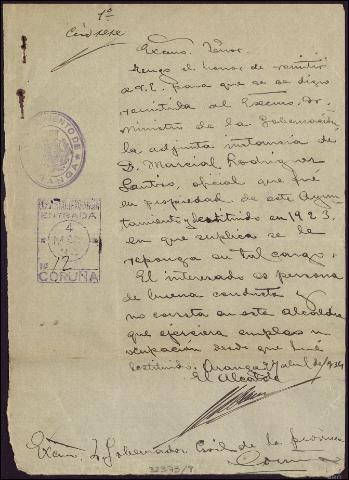 1º
Excmo. Señor.
Tengo el honor de remitir
a V.E. para que se se digne
remitirla al Excmo. Sr.
Ministro de la Gobernación
la adjunta instancia de
D. Marcial Rodriguez
Santiso, oficial que fué
en propiedad de este Ayun-
tamiento y destituido en 1923,
en que suplica se le
reponga en tal cargo.
El interesado es persona
de buena conducta y
no consta en este Alcaldia
que ejerciera empleo u
ocupación desde que fué
destituido. Aranga 27 abril de 1931
El Alcalde
Excmo. Sr. Gobernador Civil de la provincia
Coruña
AYUNTAMIENTO DE
ENTRADA
4
Nº 12
CORUÑA
32373/9